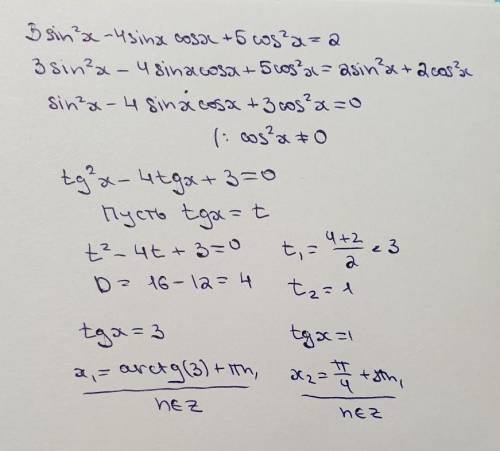 3 sin²x - 4 sinx cosx + 5 cos²x = 2
3 sin²x - 4 sinx cosx + 5 cos²x = 2 sin²x + 2 cos²x
sin²x - 4 sinx cosx + 3 cos²x = 0
(: cos²x ≠ 0
tg²x - 4 tgx + 3 = 0
Пусть tgx = t
t² - 4t + 3 = 0   t₁ = (4+2)/2 = 3
D = 16 - 12 = 4   t₂ = 1
tgx = 3   tgx = 1
x₁ = arctg(3) + πn,   x₂ = π/4 + πn,
n∈z   n∈z